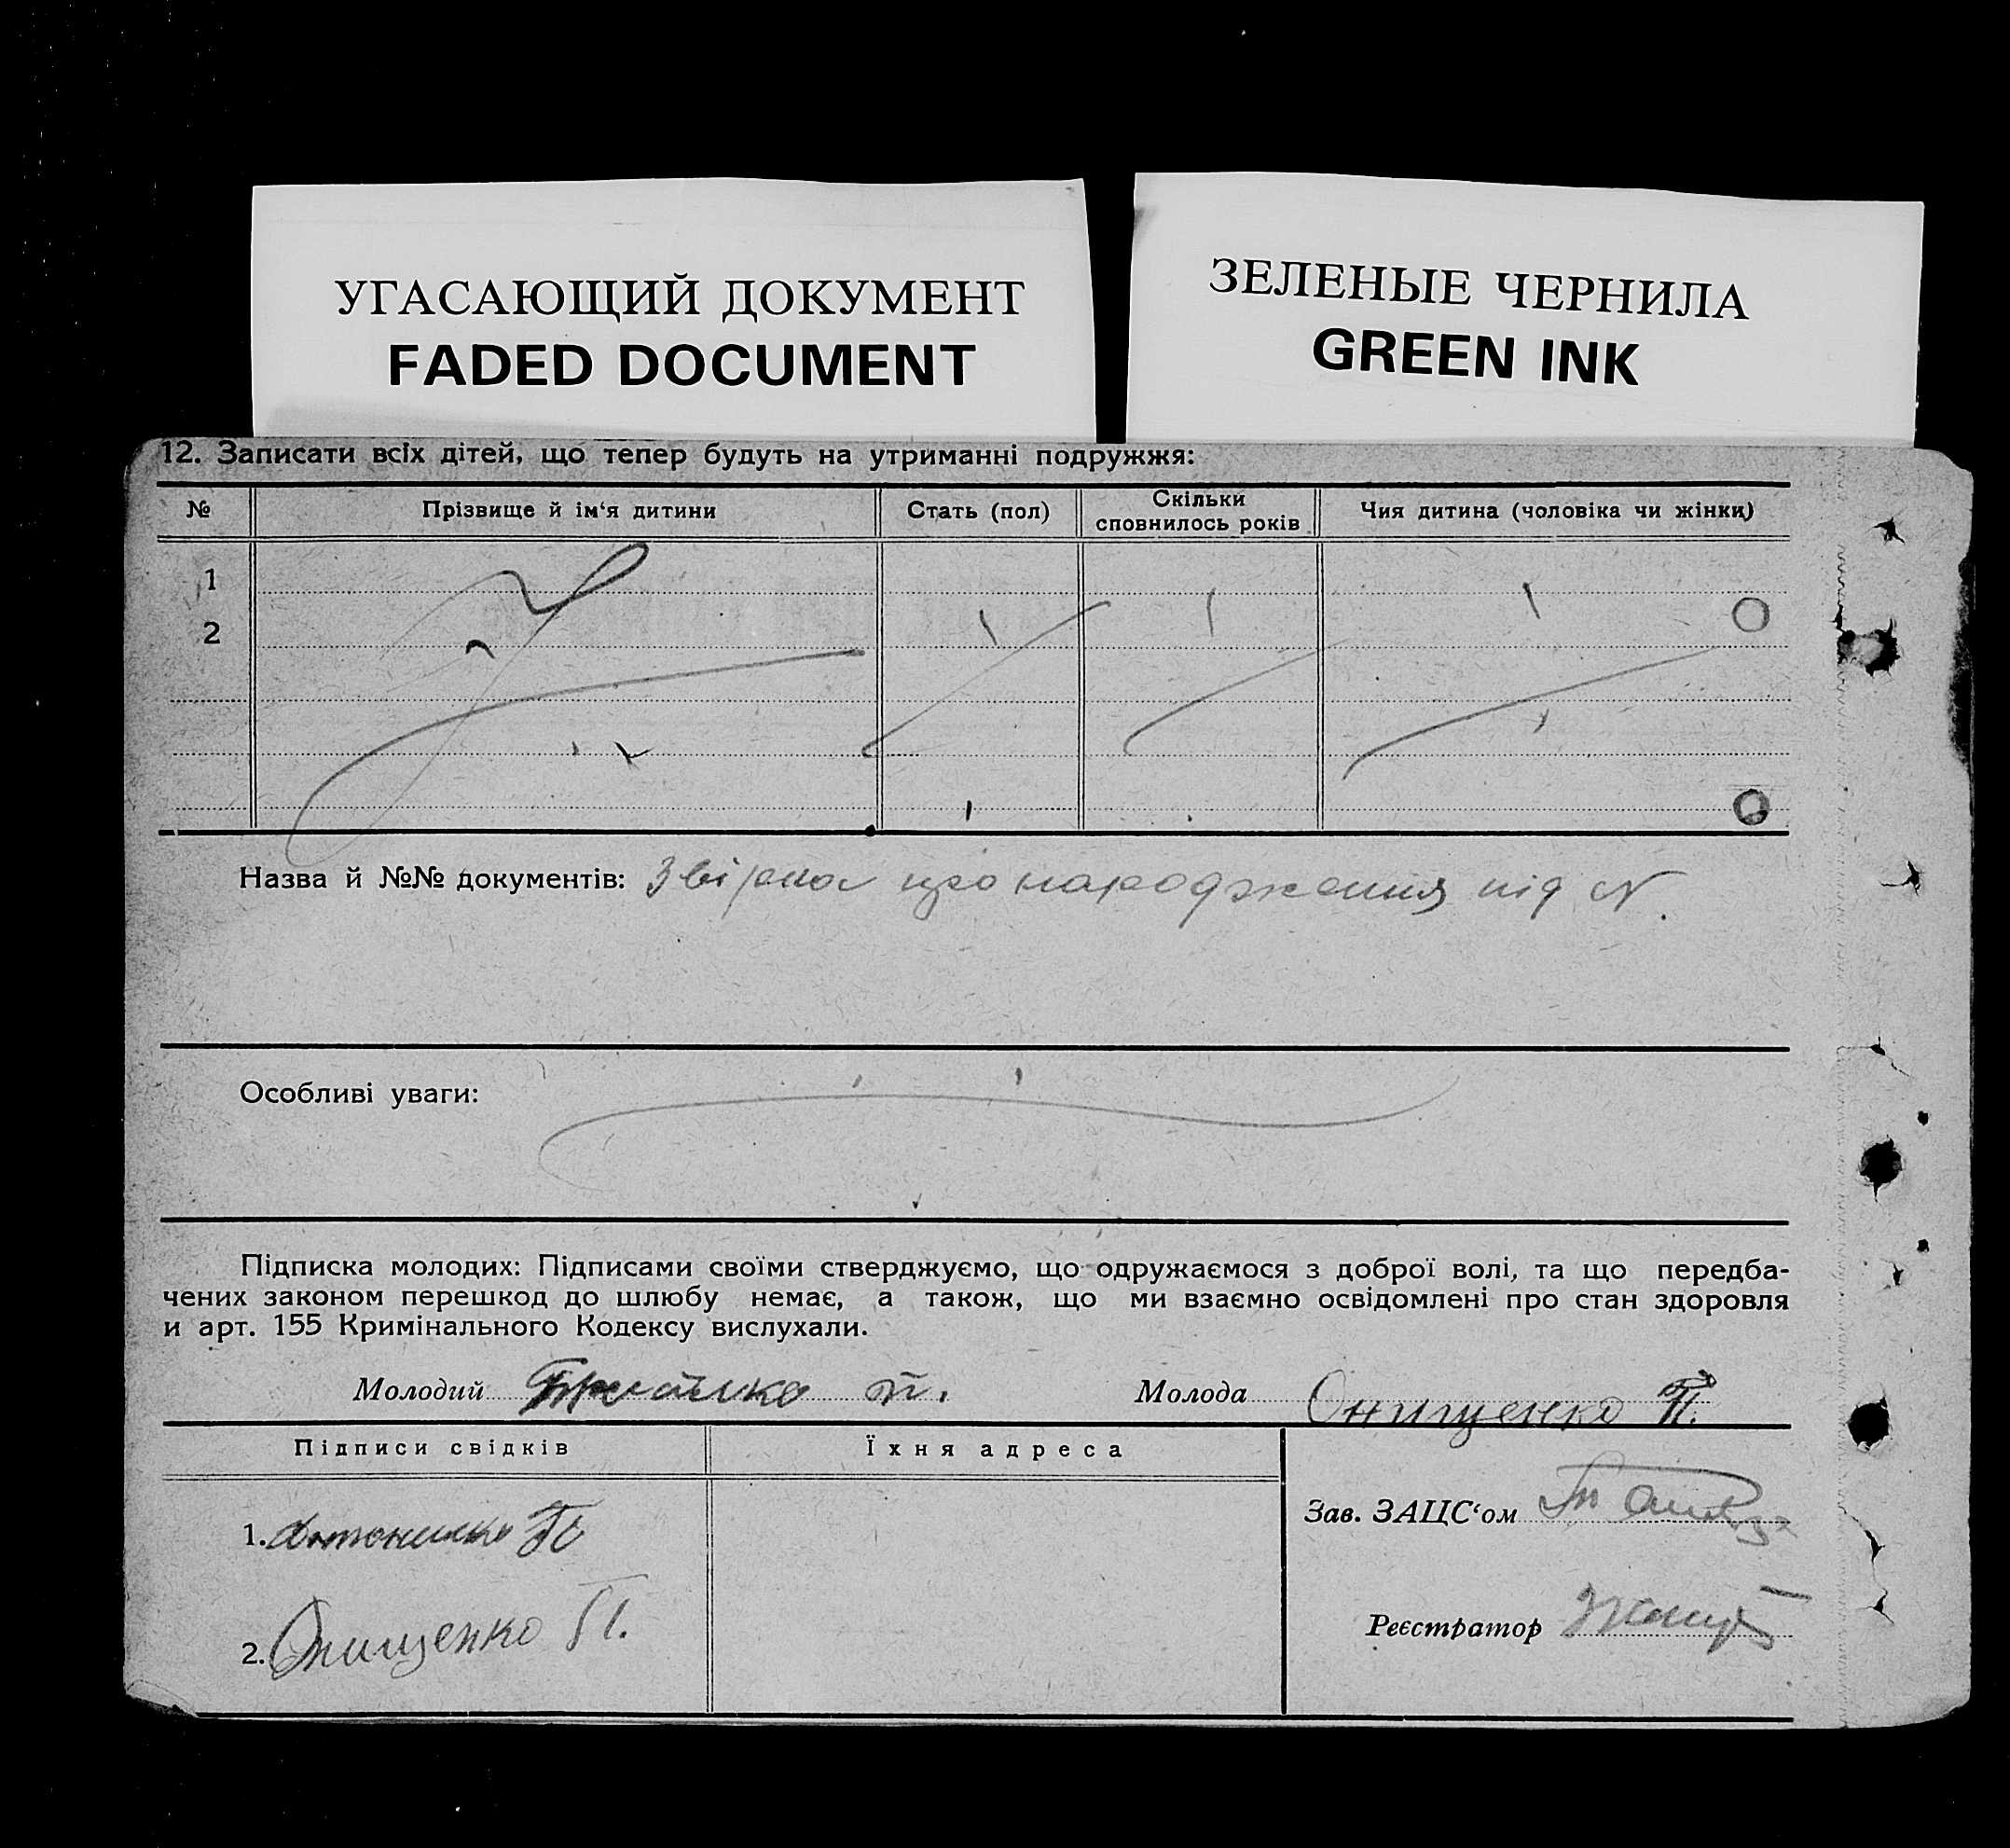 УГАСАЮЩИЙ ДОКУМЕНТ
FADED DOCUMENT
ЗЕЛЕНЫЕ ЧЕРНИЛА
GREEN INK
12. Записати всіх дітей, що тепер будуть на утриманні подружжя:
№ Прізвище й ім‘я дитини Стать (пол) Скільки сповнилось років Чия дитина (чоловіка чи жінки)
1
2
Назва й №№ документів: про народження під N.
Особливі уваги:
Підписка молодих: Підписами своїми стверджуємо, що одружаємося з доброї волі, та що передба-
чених законом перешкод до шлюбу немає, а також, що ми взаємно освідомлені про стан здоровля
и арт. 155 Кримінального Кодексу вислухали.
Молодий Молода Онищенко П.
Підписи свідків Їхня адреса
Зав. ЗАЦС‘ом
1.
Реєстратор
2. Онищенко П.